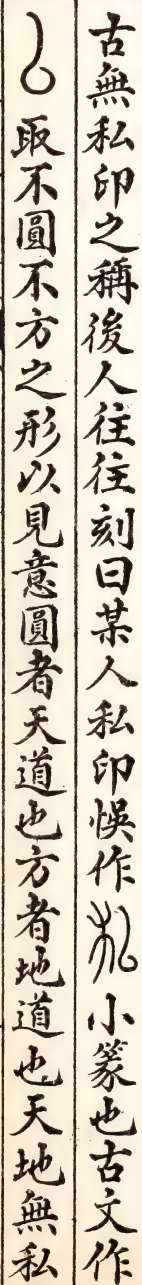 古無私印之稱後人往往刻曰某人私印悞作𥝠小篆也古文作
𠫔取不圓不方之形以見意圓者天道也方者地道也天地無私